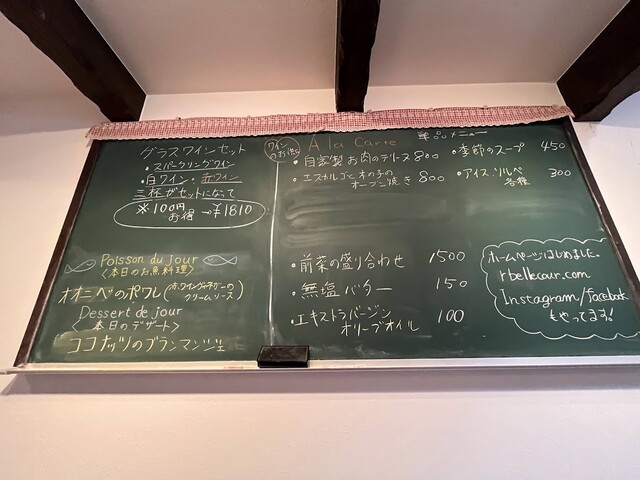 グラスワインセット
・スパークリングワイン
・白ワイン・赤ワイン
三杯がセットになって
※100円お得 →¥1810
Poisson du jour
〈本日のお魚料理〉
オオニベのポワレ(赤ワインヴィネガーのクリームソース)
Dessert de jour
〈本日のデザート〉
ココナッツのブランマンジェ
ワインのお供に
A la Carte
単品メニュー
・自家製お肉のテリーヌ 800
・エスカルゴと木の子のオーブン焼き 800
・季節のスープ 450
・アイス、ソルベ各種 300
・前菜の盛り合わせ 1500
・無塩バター 150
・エキストラバージンオリーブオイル 100
ホームページはじめました。
rbellecour.com
Instagram/facebook
もやってます!